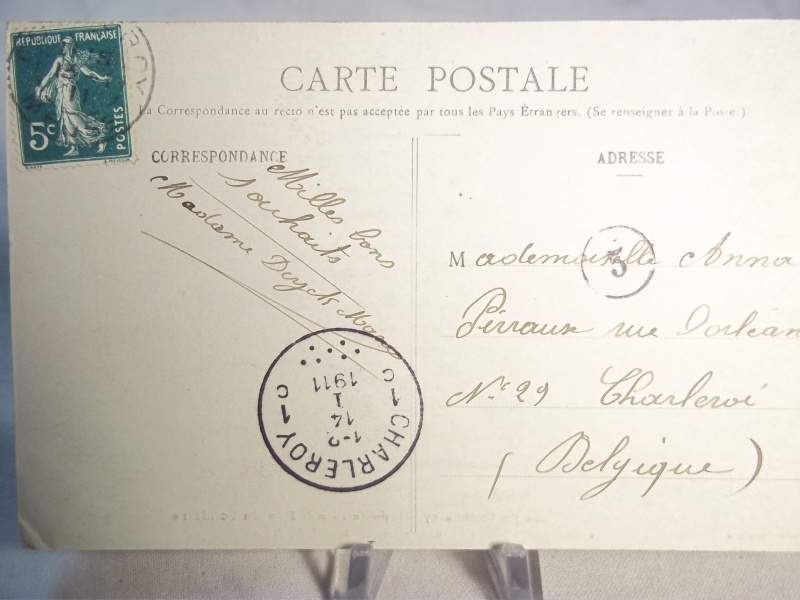 REPUBLIQUE FRANÇAISE
5c
POSTES
CARTE POSTALE
La Correspondance au recto n'est pas acceptée par tous les Pays Étrangers. (Se renseigner à la Poste.)
CORRESPONDANCE
Milles bons
souhaits
Madame
ADRESSE
Mademoiselle Anna
Pirraux rue Dorléan
No 29 Charleroi
(Belgique)
5
CHARLEROY
1-2
14
1
1911
C C